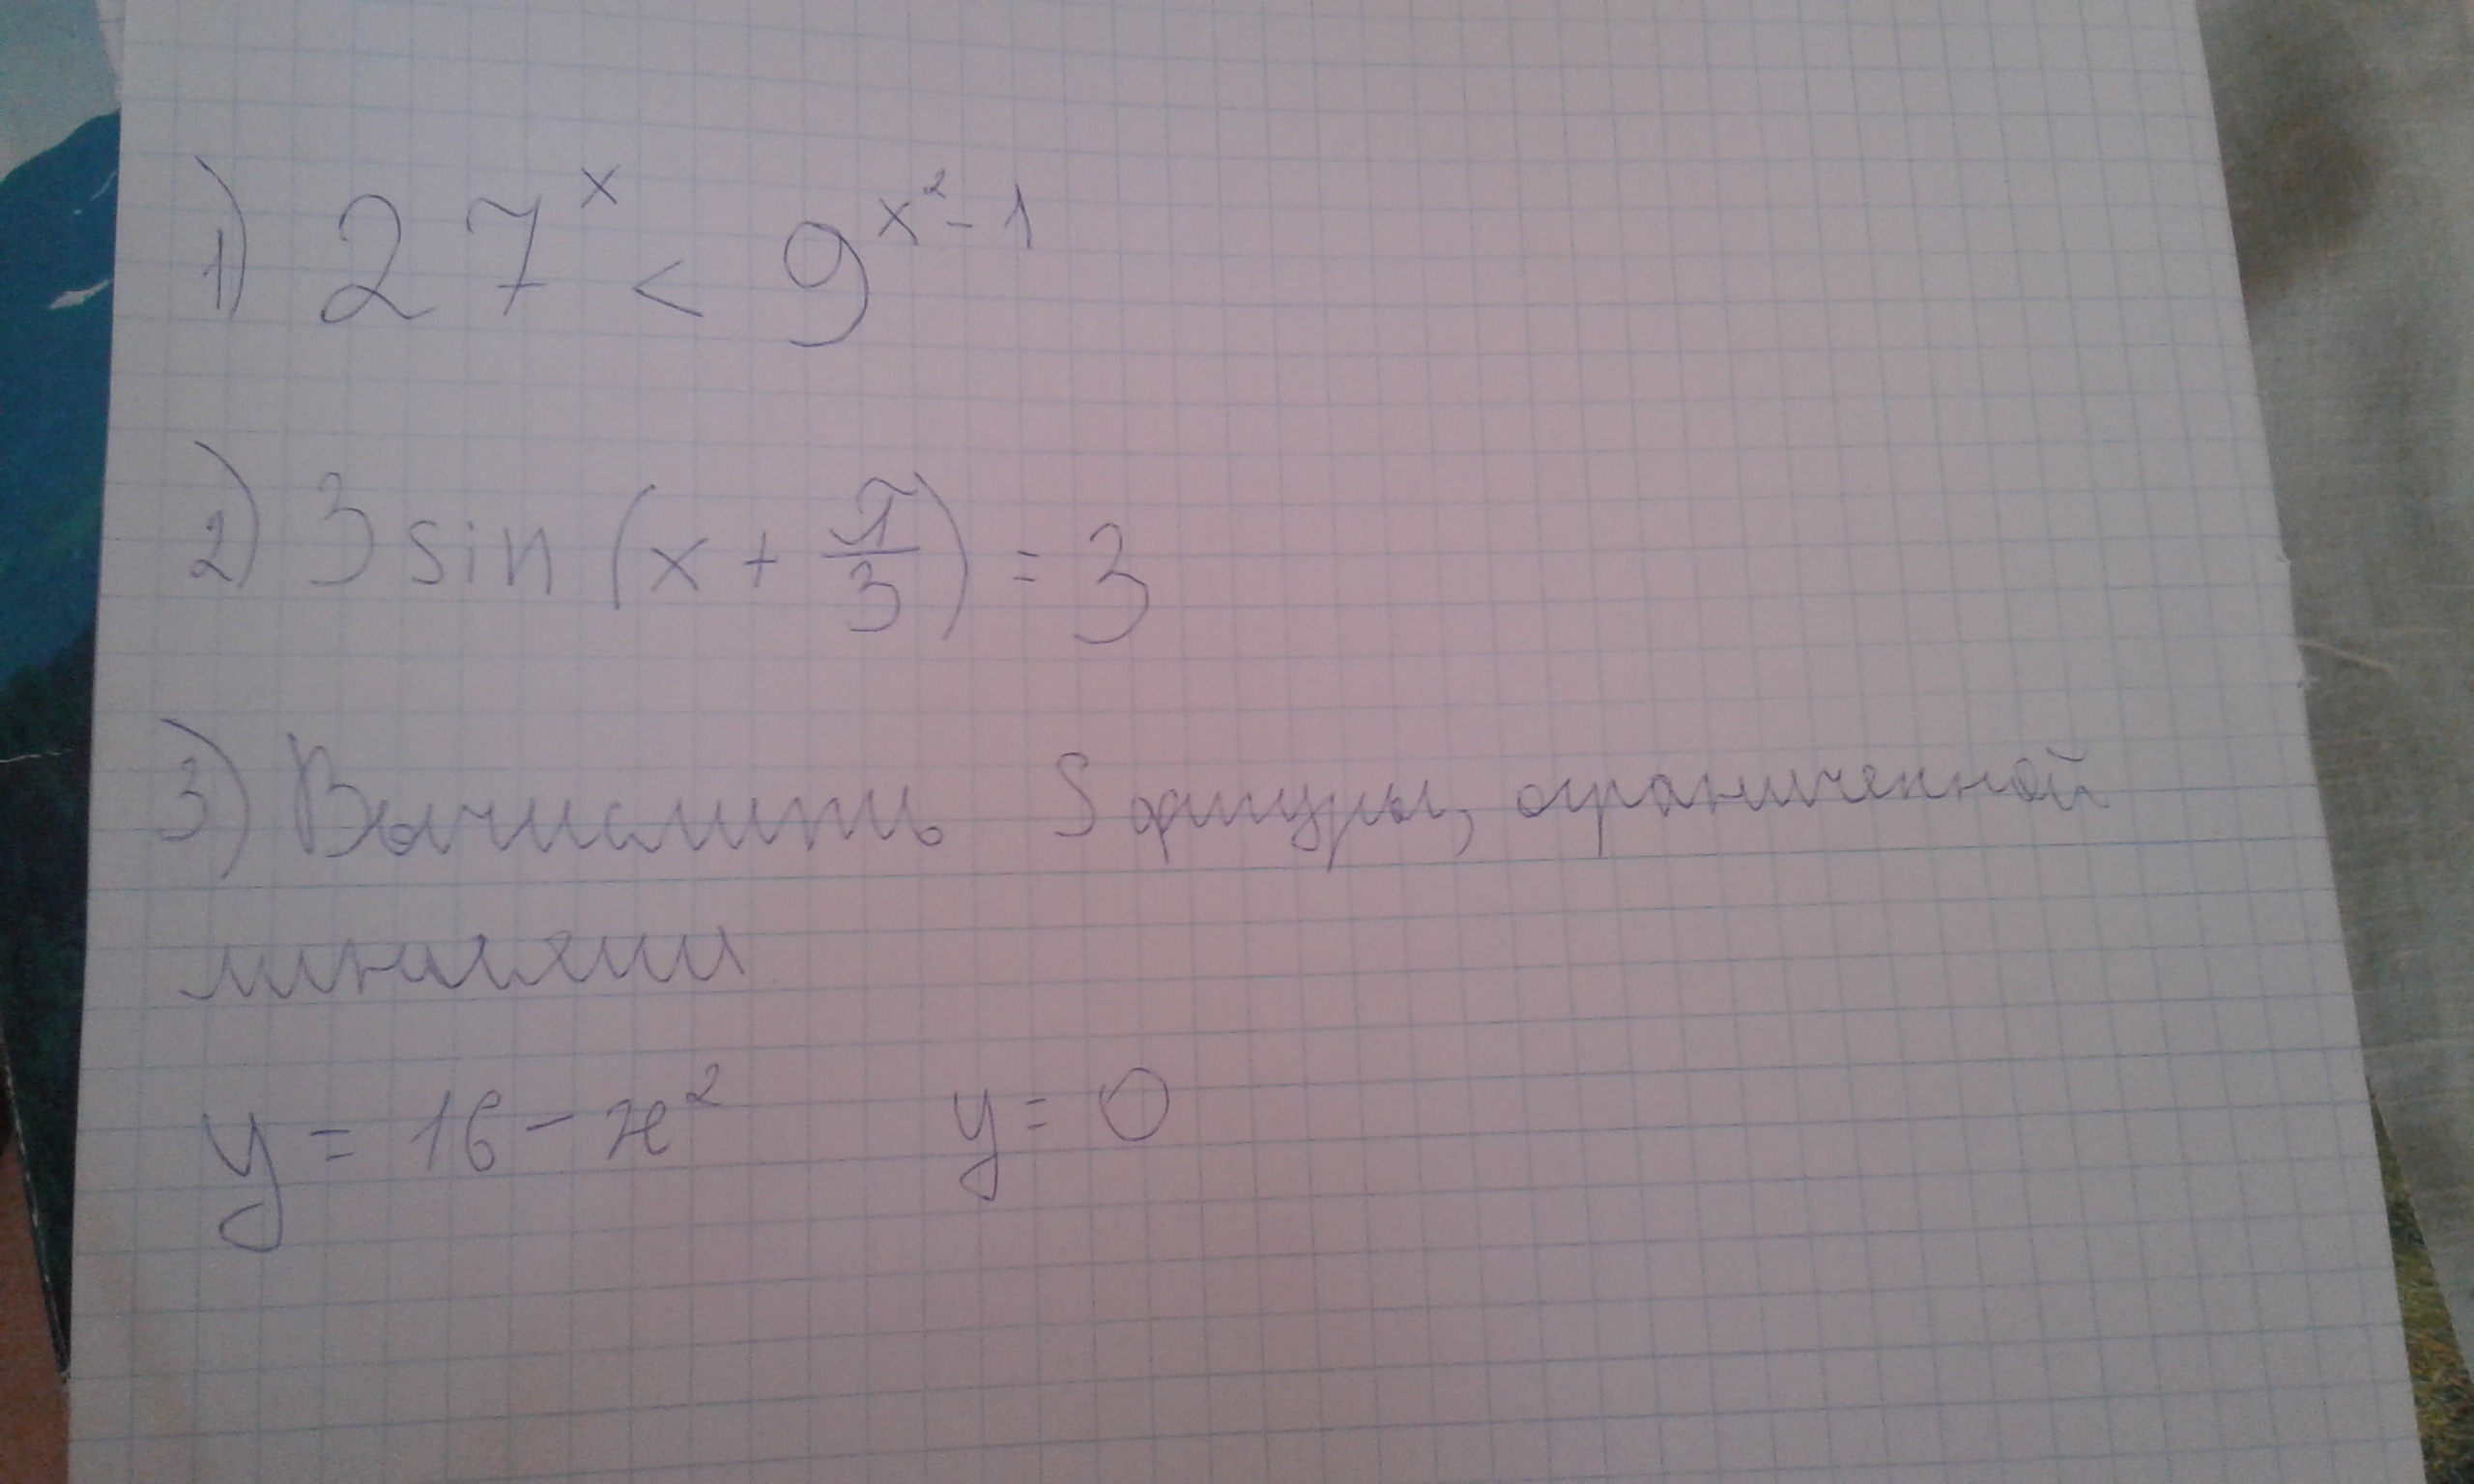 1) 27^x < 9^(x^2 - 1)
2) 3 sin (x + π/3) = 3
3) Вычислить S фигуры, ограниченной
линиями
y = 16 - x² y = 0